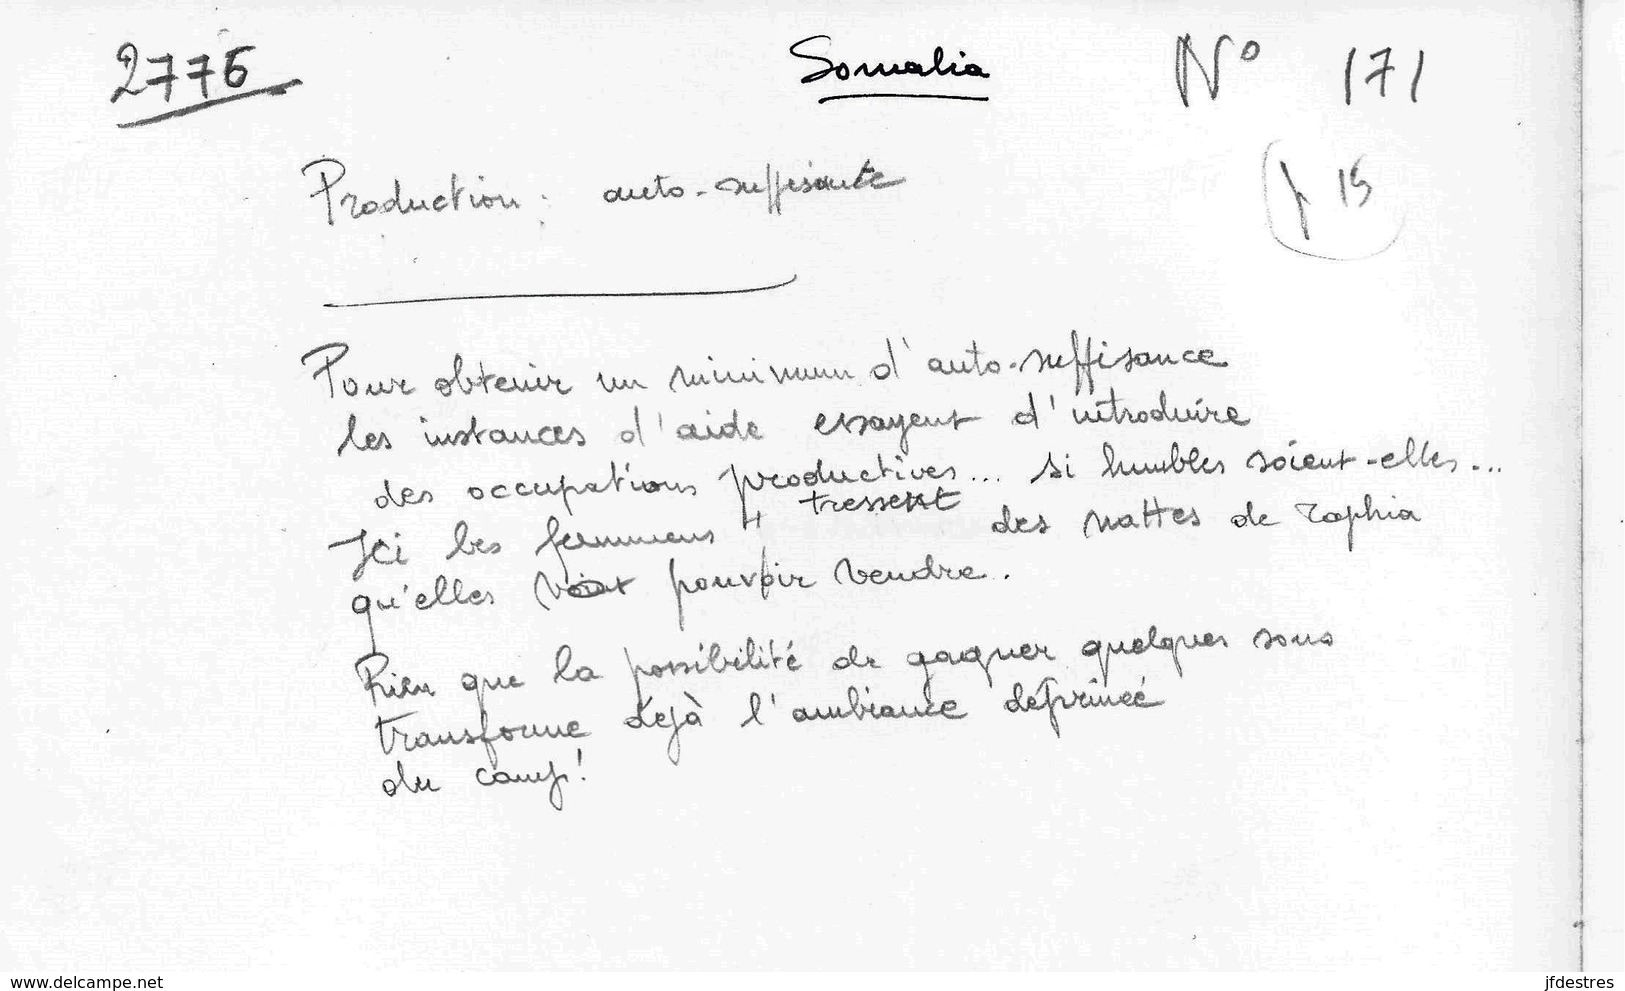 2776
Somalia
N° 171
f 15
Production : auto-suffisante
Pour obtenir un minimum d'auto-suffisance
les instances d'aide essayent d'introduire
des occupations productives... si humbles soient-elles...
Ici les femmes tressent des nattes de raphia
qu'elles vont pouvoir vendre.
Rien que la possibilité de gagner quelques sous
transforme déjà l'ambiance déprimée
du camp!
www.delcampe.net
jfdestres